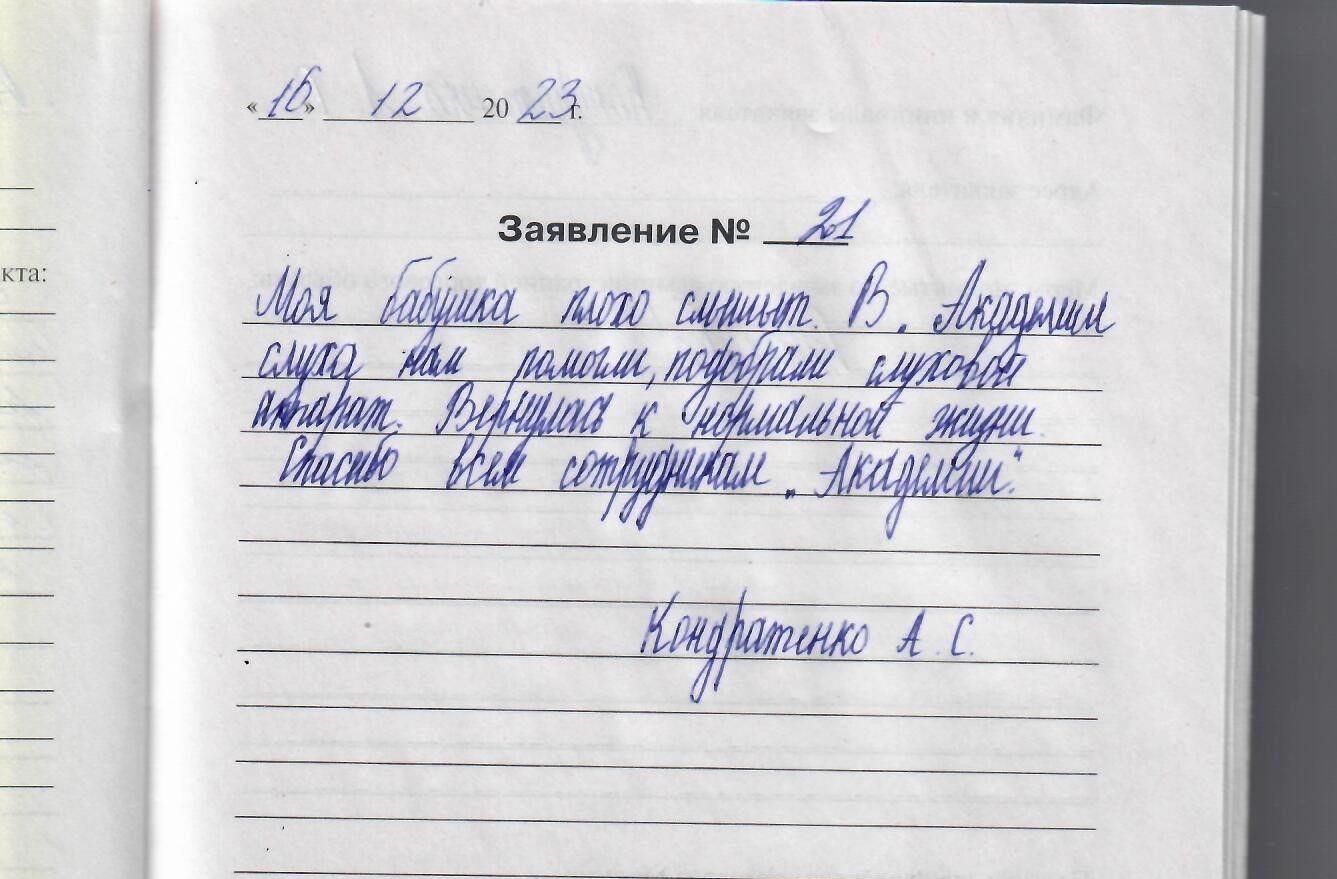 «16» 12 2023 г.
Заявление № 21
кта:
Моя бабушка плохо слышыт. В „Академии
слуха нам помогли, подобрали слуховой
аппарат. Вернулась к нормальной жизни.
Спасибо всем сотрудникам „Академии“.
Кондратенко А. С.